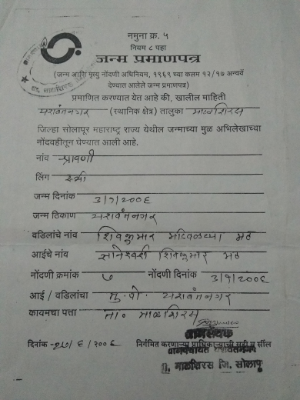 नमुना क्र. ५
नियम ८ पहा
जन्म प्रमाणपत्र
(जन्म आणि मृत्यु नोंदणी अधिनियम, १९६९ च्या कलम १२/१७ अन्वये
देण्यात आलेले जन्म प्रमाणपत्र)
प्रमाणित करण्यात येत आहे की, खालील माहिती
यशवंतनगर (स्थानिक क्षेत्र) तालुका माळशिरस
जिल्हा सोलापूर महाराष्ट्र राज्य येथील जन्माच्या मुळ अभिलेखाच्या
नोंदवहीतून घेण्यात आली आहे.
नांव श्रावणी
लिंग स्त्री
जन्म दिनांक
जन्म ठिकाण यशवंतनगर
वडिलांचे नांव शिवकुमार मठ
आईचे नांव ज्ञानेश्वरी शिवकुमार मठ
नोंदणी क्रमांक ७ नोंदणी दिनांक
आई / वडिलांचा मु. पो. यशवंतनगर
कायमचा पत्ता ता. माळशिरस
दिनांक निर्गमित करणाऱ्या प्राधिकाऱ्याची सही व सील
ग्रामसेवक
ग्रामपंचायत यशवंतनगर
ता. माळशिरस जि. सोलापूर